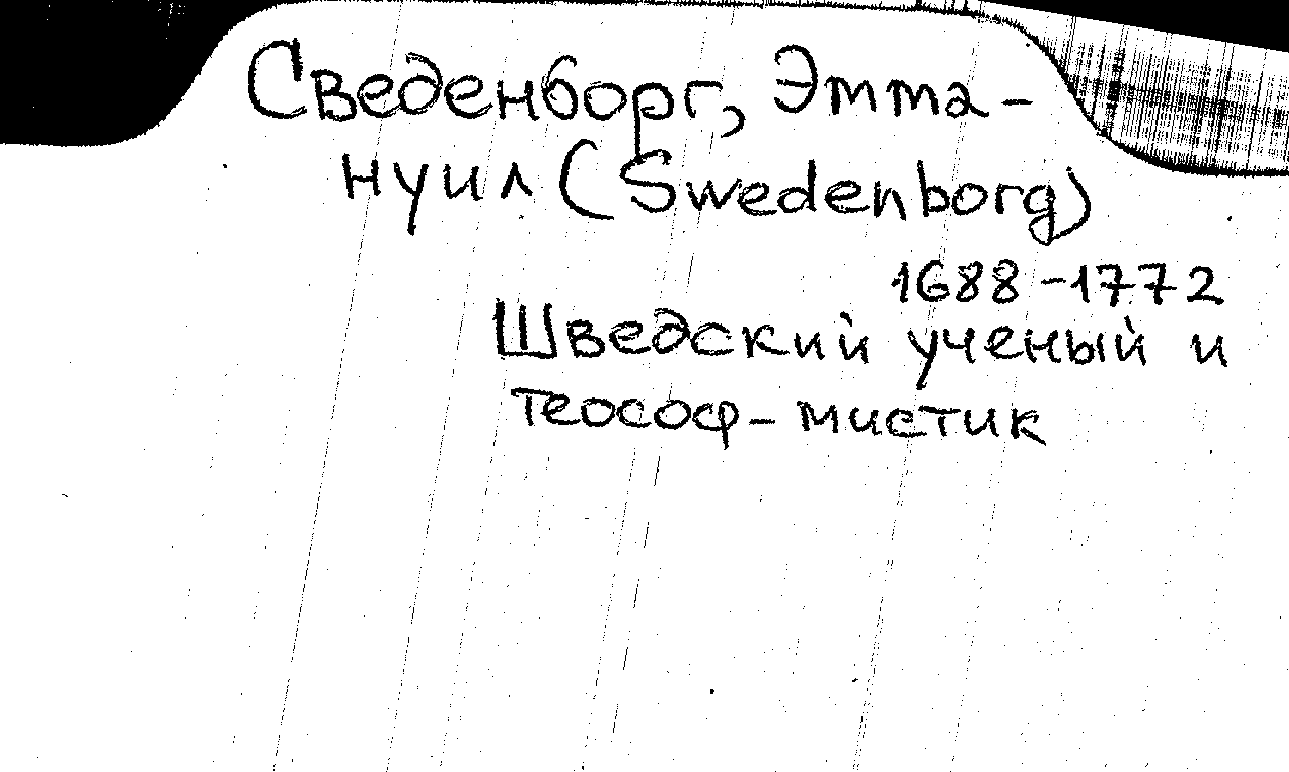 Сведенборг, Эмма-
нуил (Swedenborg)
1688-1772
Шведский ученый и
теософ-мистик